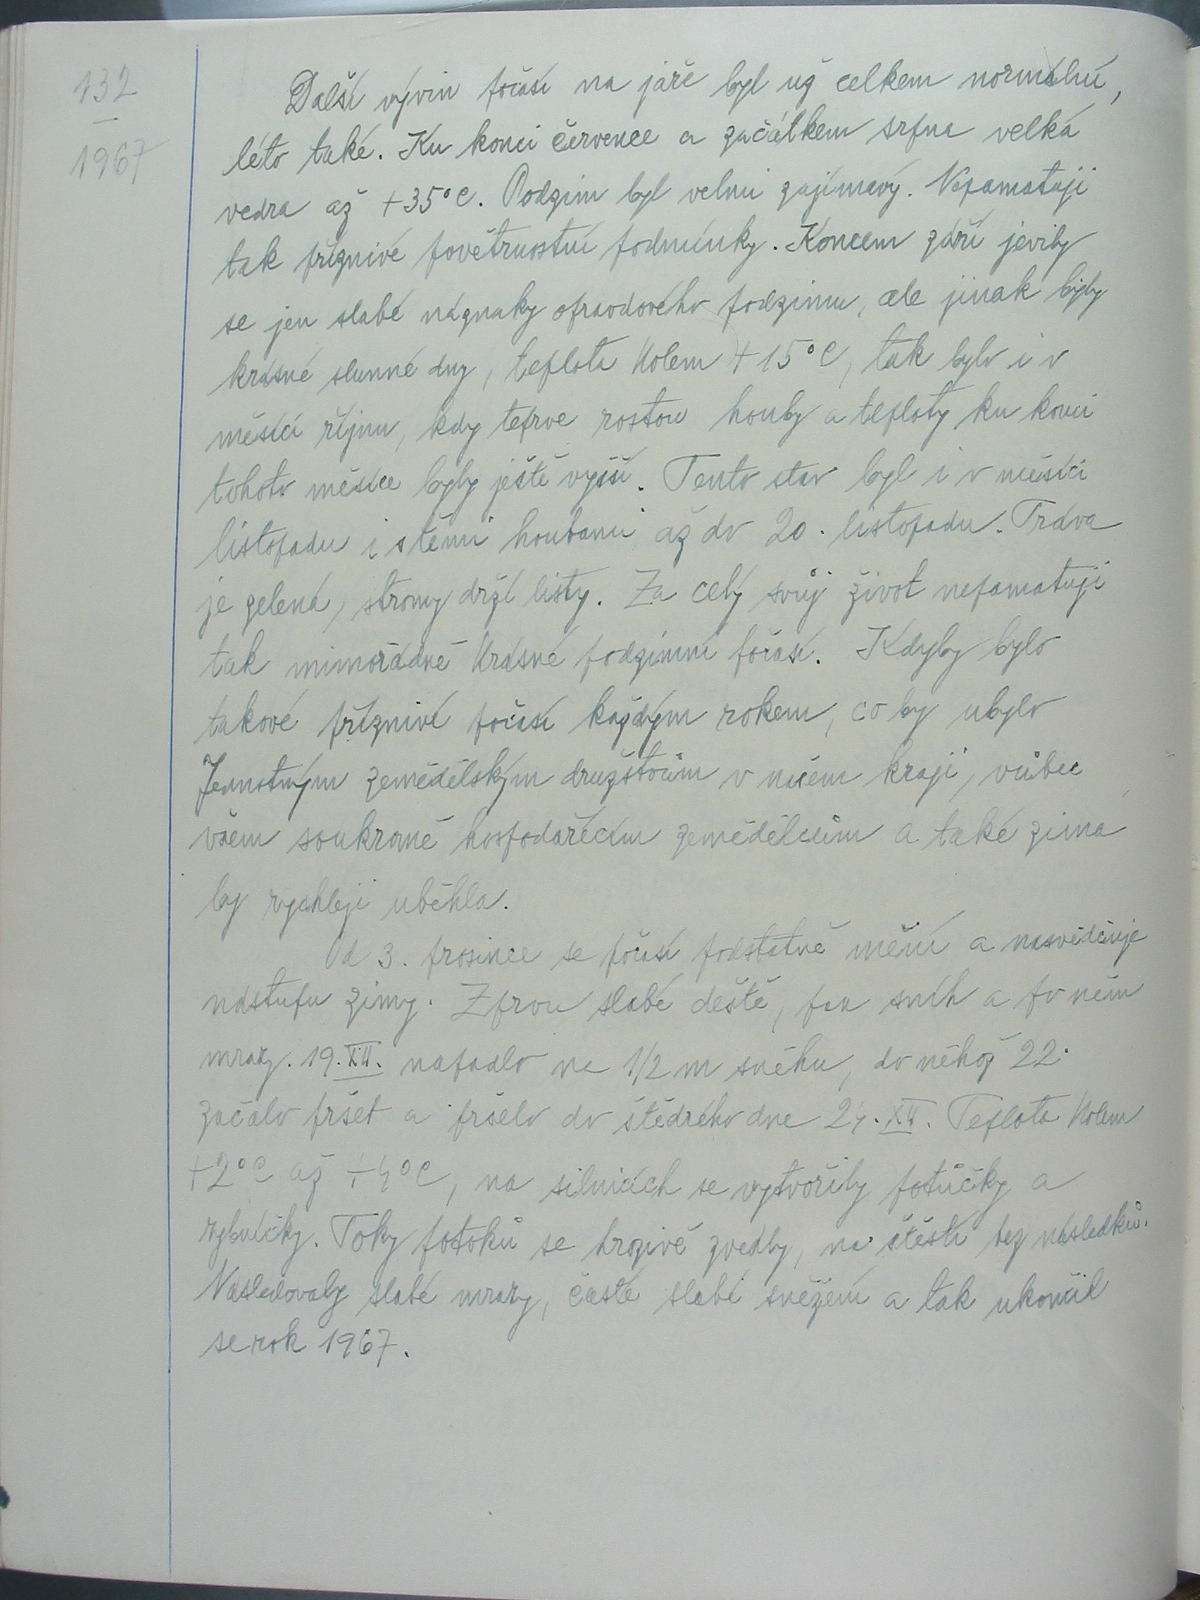 132
1967
Další vývin počasí na jaře byl už celkem normální,
léto také. Ku konci července a začátkem srpna velká
vedra až +35°C. Podzim byl velmi zajímavý. Nepamatuji
tak příznivé povětrnostní podmínky. Koncem září jevily
se jen slabé náznaky opravdového podzimu, ale jinak byly
krásné slunné dny, teplota kolem +15°C, tak bylo i v
měsíci říjnu, kdy teprve rostou houby a teploty ku konci
tohoto měsíce byly ještě vyšší. Tento stav byl i v měsíci
listopadu i s těmi houbami až do 20. listopadu. Tráva
je zelená, stromy drží listy. Za celý svůj život nepamatuji
tak mimořádně krásné podzimní počasí. Kdyby bylo
takové příznivé počasí každým rokem, co by ubylo
Jednotným zemědělským družstvům v našem kraji, vůbec
všem soukromě hospodařícím zemědělcům a také zima
by rychleji uběhla.
Od 3. prosince se počasí podstatně mění a nasvědčuje
nástupu zimy. Zprvu slabé deště, pak sníh a po něm
mrazy. 19. XII. napadlo na 1/2 m sněhu, do něhož 22.
začalo pršet a pršelo do štědrého dne 24. XII. Teplota kolem
+2°C až +4°C, na silnicích se vytvořily potůčky a
rybníčky. Toky potoků se hrozivě zvedly, na štěstí bez následků.
Následovaly slabé mrazy, časté slabé sněžení a tak ukončil
se rok 1967.